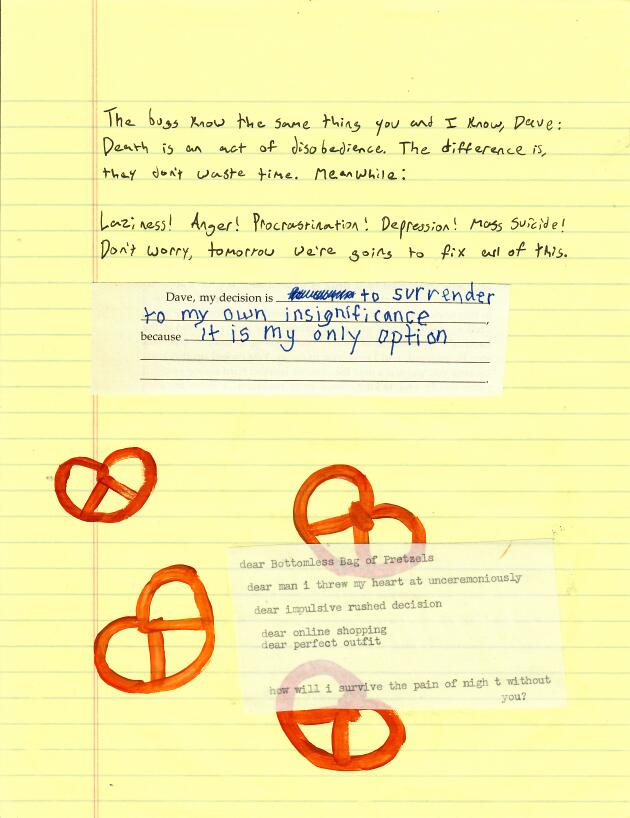 The bugs know the same thing you and I know, Dave:
Death is an act of disobedience. The difference is,
they don't waste time. Meanwhile:
Laziness! Anger! Procrastination! Depression! Mass Suicide!
Don't worry, tomorrow we're going to fix all of this.
Dave, my decision is to surrender
to my own insignificance,
because it is my only option
.
dear Bottomless Bag of Pretzels
dear man i threw my heart at unceremoniously
dear impulsive rushed decision
dear online shopping
dear perfect outfit
how will i survive the pain of nigh t without
you?